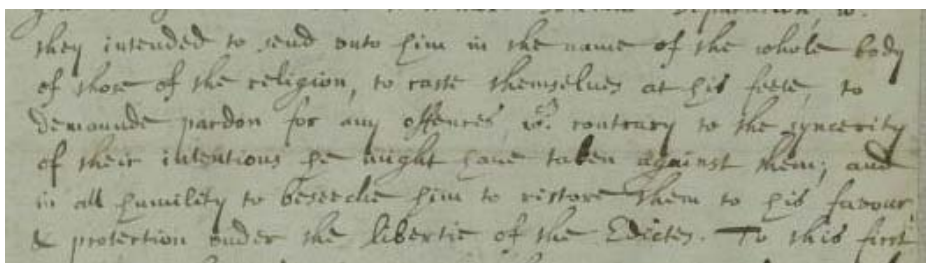 they intended to send unto him in the name of the whole body
of those of the religion, to caste themselves at his feete, to
demaunde pardon for any offences, wch. contrary to the syncerity
of their intentions he might have taken against them; and
in all humility to beseeche him to restore them to his favour,
& protection under the libertie of the Edictes. To this first